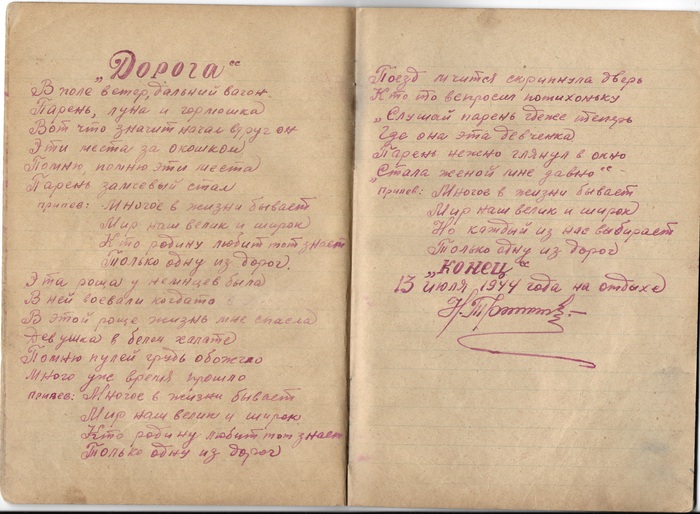 „Дорога“
В поле ветер, дальний вагон.
Парень, луна и гормошка
Вот что значит нагал вдруг он
Эти места за окошком
Помню, помню эти места
Парень замсевый стал
припев: Многое в жизни бывает
Мир наш велик и широк
Кто родину любит тот знает
Только одну из дорог.
Эта роща у немцев была
В ней воевали когдато
В этой роще жизнь мне спасла
Девушка в белом халате
Помню пулей грудь обожгло
Много уже время прошло
припев: Многое в жизни бывает
Мир наш велик и широк
Кто родину любит тот знает
Только одну из дорог
Поезд мчится скрипнула дверь
Кто то вспросил потихоньку
„Слушай парень гдеже теперь
Где она эта девченка
Парень нежно глянул в окно
„Стала женой мне давно“ -
припев: Многое в жизни бывает
Мир наш велик и широк
Но каждый из нас выбирает
Только одну из дорог
„конец“
13 июля 1944 года на отдыхе